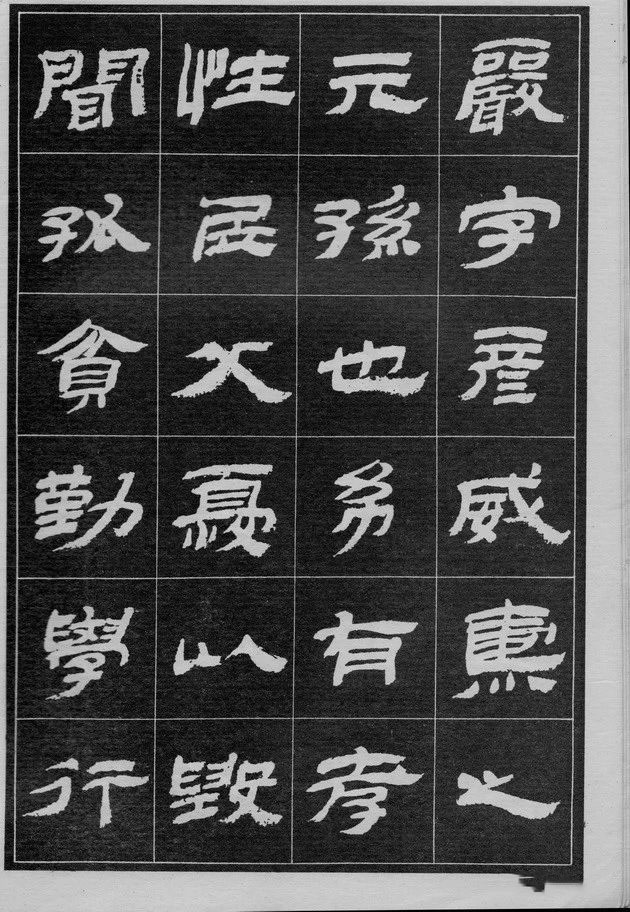 嚴字彦威燾之
元孫也幼有孝
性居父憂以毀
聞孤貧勤學行